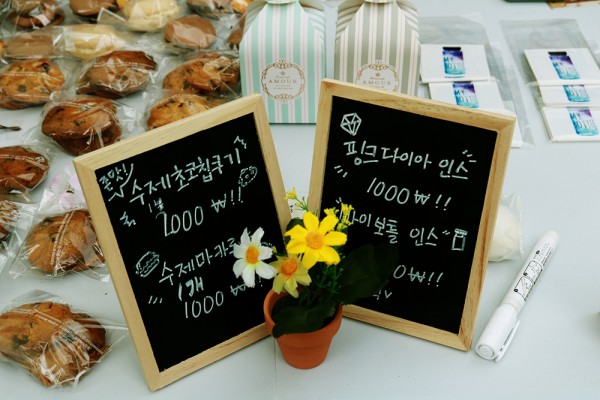 존맛!
수제초코칩쿠키
1봉
1000₩!!
수제마카
1개
1000₩!!
핑크다이아 인스
1000₩!!
인스
0₩!!
AMOUR
AMOUR